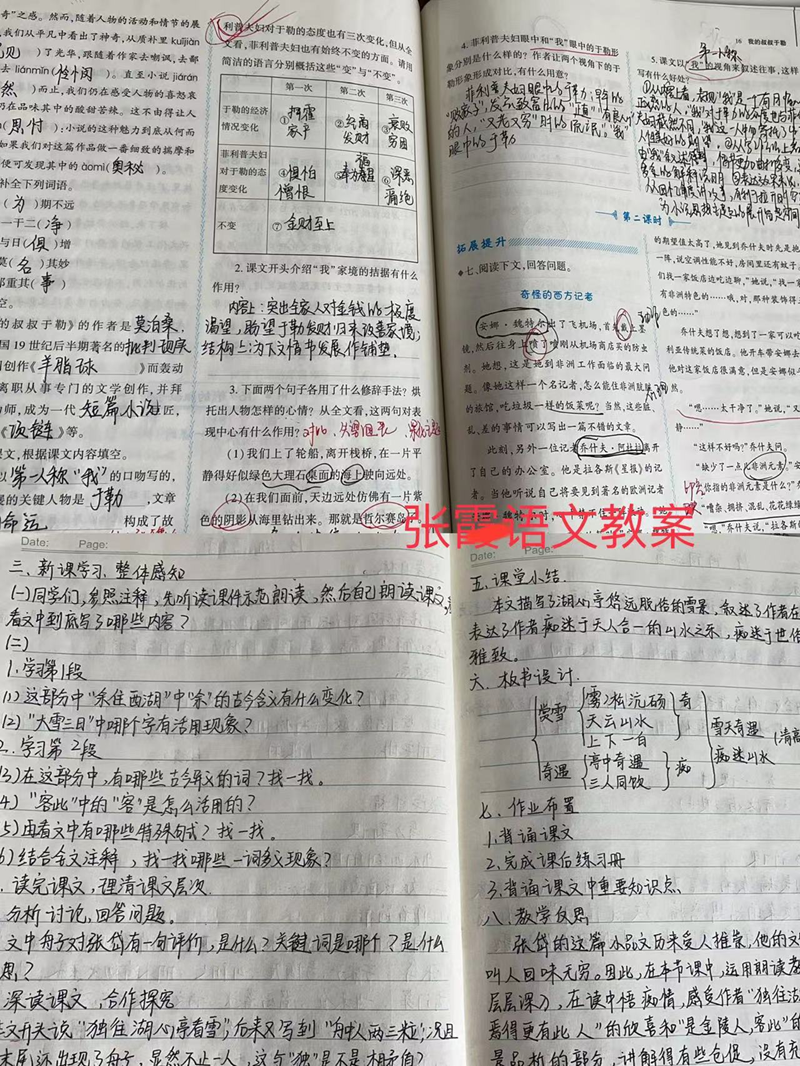 奇"之感。然而,随着人物的活动和情节的展
我们从平凡中看出了神奇,从质朴里kuījiàn
了光华,跟随着作家去嘲讽,去鄙
去liánmǐn(怜悯)。直至小说jiárán
而止,我们仍在感受人物的喜怒哀
仍在品味其中的酸甜苦辣。这不由得让人
(思忖):小说的这种魅力到底从何而
如果我们对这篇作品做一番细致的揣摩和
便可发现其中的àomì(奥秘)。
补全下列词语。
(为)期不远
一干二(净)
与日(俱)增
莫(名)其妙
郑重其(事)
的叔叔于勒》的作者是莫泊桑,
国19世纪后半期著名的批判现实
创作《羊脂球》而轰动
离职从事专门的文学创作,并拜
为师,成为一代短篇小说巨匠,
《项链》等。
课文,根据课文内容填空。
以第一人称"我"的口吻写的,
的关键人物是于勒,文章
命运构成了故
利普夫妇对于勒的态度也有三次变化,但从全
文看,菲利普夫妇也有始终不变的方面。请用
简洁的语言分别概括这些"变"与"不变"。
第一次 第二次 第三次
于勒的经济情况变化 ①挥霍家产 ②经商发财 ③衰败穷困
菲利普夫妇对于勒的态度变化 ④惧怕憎恨 ⑤ ⑥
不变 ⑦金财至上
2. 课文开头介绍"我"家境的拮据有什么
作用?
内容上:突出全家人对金钱的极度
渴望,盼望于勒发财归来改善家境;
结构上:为下文情节发展作铺垫。
3. 下面两个句子各用了什么修辞手法?烘
托出人物怎样的心情?从全文看,这两句对表
现中心有什么作用?对比
(1)我们上了轮船,离开栈桥,在一片平
静得好似绿色大理石桌面的海上驶向远处。
(2)在我们面前,天边远处仿佛有一片紫
色的阴影从海里钻出来。那就是哲尔赛岛
16 我的叔叔于勒
4. 菲利普夫妇眼中和"我"眼中的于勒形
象分别是什么样的?作者让两个视角下的于
勒形象形成对比,有什么用意?
菲利普夫妇眼中的于勒:早年的
"败家子",发了致富后的"正直""有良心"
的人,"又老又穷"时的"流氓"。"我"
眼中的于勒
5. 课文以"我"的视角来叙述往事,这样
写有什么好处?
第二课时
拓展提升
七、阅读下文,回答问题。
奇怪的西方记者
安娜·魏特尔出了飞机场,首先戴上墨
镜,然后往身上喷了喷刚从机场商店买的防虫
剂。她想,这是她到非洲工作面临的最大问
题。像她这样一个名记者,怎么能住非洲肮脏
的旅馆,吃垃圾一样的饭菜呢?当然,这些脏、
乱、差的事情可以写出一篇不错的文章。
此刻,另外一位记者乔什夫·阿杜拉离开
了自己的办公室。他是拉各斯《星报》的记
者。当他听说自己将要见到著名的欧洲记者
的期望值太高了,她见到乔什夫时先是抱
一阵,说空调性能不好,房间里还有蚊子,
们找一家饭店边吃边聊,"她说,"我一
有非洲特色的……哦,对,那种装饰得
色的……"
乔什夫想了想,想到了一家可以吃
利亚传统菜的饭店。他开车带安娜去
他对这家饭店很满意,但是安娜似乎
然。
"嗯……太干净了。"她说,"又
静……"
"这样不好吗?"乔什夫问。
"缺少了一点儿非洲元素。"安
你指的非洲元素是什么?"乔
"嘈杂、拥挤、混乱、花花绿绿
"呃,"乔什夫说,"拉各斯
张霞语文教案
Date: Page:
三、新课学习,整体感知
(一)同学们,参照注释,先听读课件示范朗读,然后自己朗读课文,
看文中到底写了哪些内容?
(二)
1.学习第1段
(1)这部分中"余住西湖"中"余"的古今含义有什么变化?
(2)"大雪三日"中哪个字有活用现象?
2.学习第2段
(3)在这部分中,有哪些古今异义的词?找一找。
4)"客此"中的"客"是怎么活用的?
5)再看文中有哪些特殊句式?找一找。
6)结合全文注释,找一找哪些一词多义现象?
.读完课文,理清课文层次
分析讨论,回答问题。
文中舟子对张岱有一句评价,是什么?关键词是哪个?是什么
思?
深读课文,合作探究
文开头说"独往湖心亭看雪",后来又写到"舟中人两三粒",况且
末尾还出现了舟子,显然不止一人,这与"独"是不是相矛盾?
Date: Page:
五、课堂小结
本文描写了湖心亭悠远脱俗的雪景,叙述了作者在
表达了作者痴迷于天人合一的山水之乐,痴迷于世俗
雅致。
六、板书设计
赏雪 雾凇沆砀 天云山水 上下一白 奇
奇遇 亭中奇遇 三人同饮 痴
雪天奇遇
痴迷山水
七、作业布置
1.背诵课文
2.完成课后练习册
3.背诵课文中重要知识点
八、教学反思
张岱的这篇小品文历来受人推崇,他的文
叫人回味无穷。因此,在本节课中,运用朗读教
层层深入,在读中悟痴情,感受作者"独往湖
焉得更有此人"的欣喜和"是金陵人,客此"的
是品析的部分,讲解得有些仓促,没有充